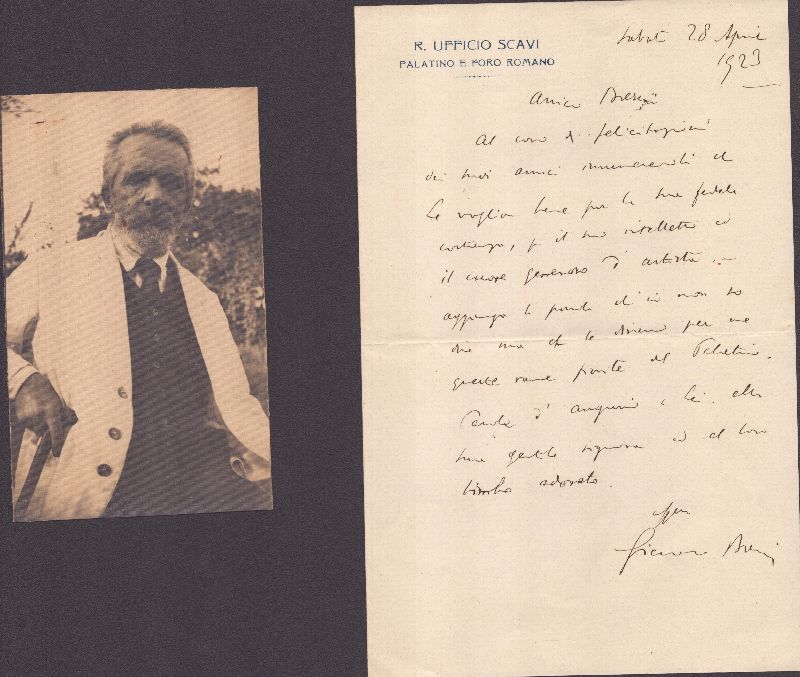 R. UFFICIO SCAVI
PALATINO E FORO ROMANO
Sabato 28 Aprile
1923
Amico
Al coro di felicitazioni
dei suoi amici innumerevoli che
le voglion bene per la sua fedele
costanza, per il suo intelletto ed
il cuore generoso d'artista
aggiungo la parola ch'io non so
dire ma che le diranno per me
queste rame fiorite del Palatino.
Parola d'augurio a Lei, alla
sua gentile signora ed al loro
bimbo adorato.
Giacomo Boni